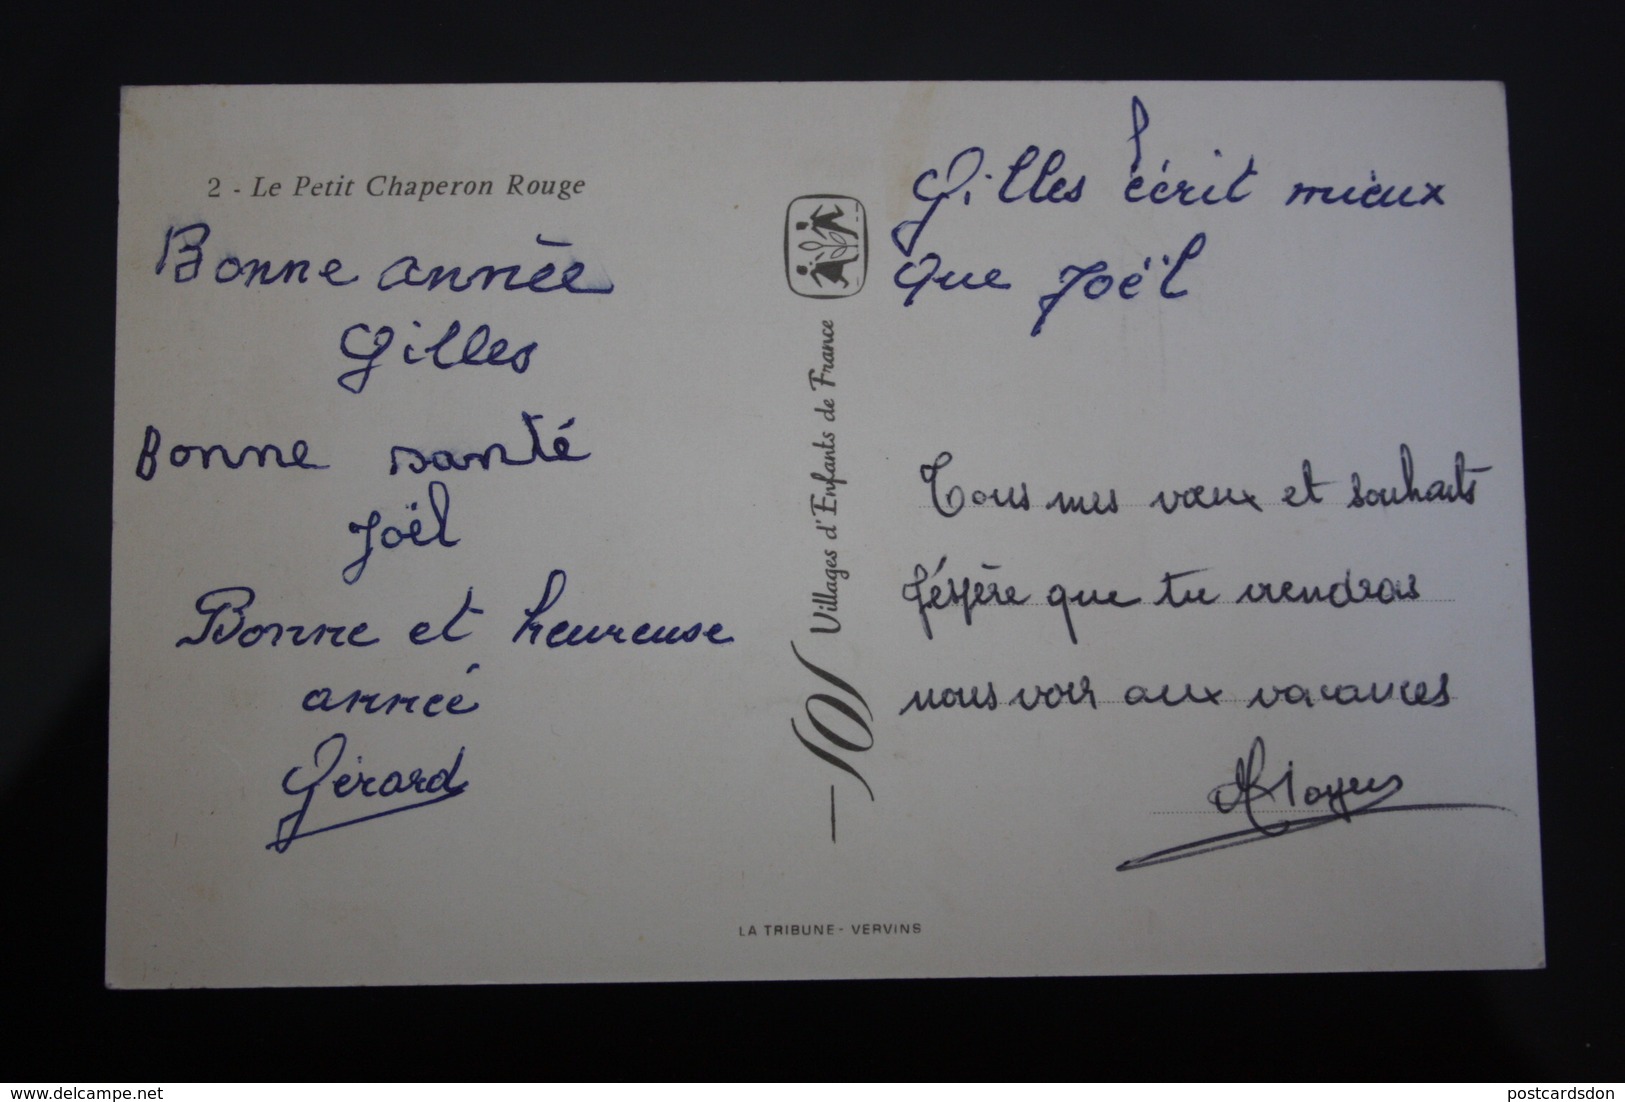 2 - Le Petit Chaperon Rouge
Bonne année
Gilles
Bonne santé
Joël
Bonne et heureuse
année
Gérard
SOS Villages d'Enfants de France
Gilles écrit mieux
que Joël
Tous mes vœux et souhaits
J'éspère que tu viendras
nous voir aux vacances
LA TRIBUNE - VERVINS
delcampe.net
postcardsdon